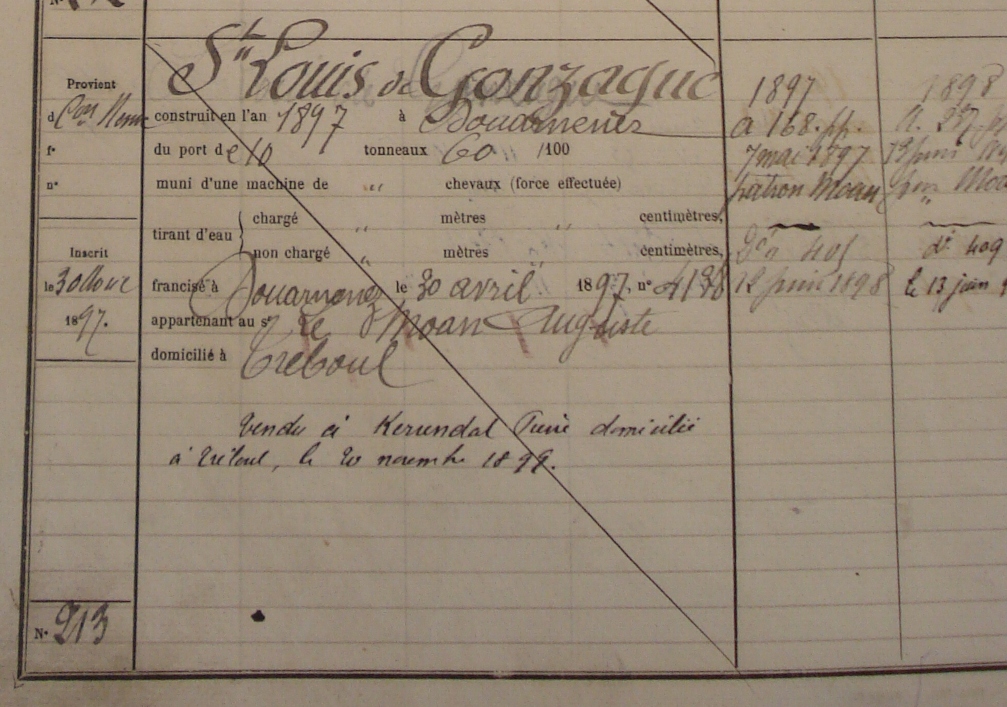 St Louis de Gonzague
Provient
d con Neuve construit en l'an 1897 à Douarnenez
f° du port de 10 tonneaux 60 /100
n° muni d'une machine de " chevaux (force effectuée)
tirant d'eau { chargé " mètres " centimètres,
non chargé " mètres centimètres,
Inscrit
le 30 francisé à Douarnenez le 30 avril 1897, n°
1897. appartenant au sr Le Moan Auguste
domicilié à Tréboul
Vendu à Kerundal domicilié
à Tréboul, le 20 novembre 1899.
N° 213
1897
a 168. pp.
7 mai 1897
patron Moan
do n 401
12 juin 1898
1898
a.
13 juin
pon Moa
do 409
le 13 juin